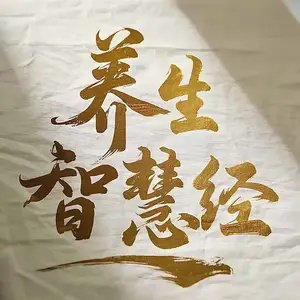 养生
智慧经